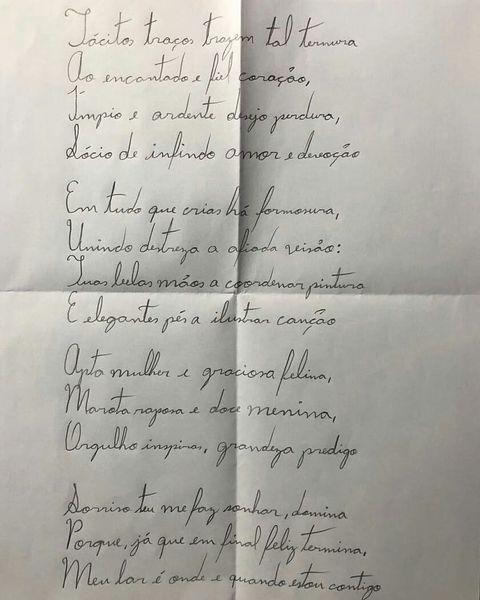 Tácitos traços trazem tal ternura
Ao encantado e fiel coração,
Ímpio e ardente desejo perdura,
Sócio de infindo amor e devoção
Em tudo que crias há formosura,
Unindo destreza a afiada visão:
Tuas belas mãos a coordenar pintura
E elegantes pés a ilustrar canção
Apta mulher e graciosa felina,
Marota raposa e doce menina,
Orgulho inspiras, grandeza predigo
Sorriso teu me faz sonhar, domina
Porque, já que em final feliz termina,
Meu lar é onde e quando estou contigo